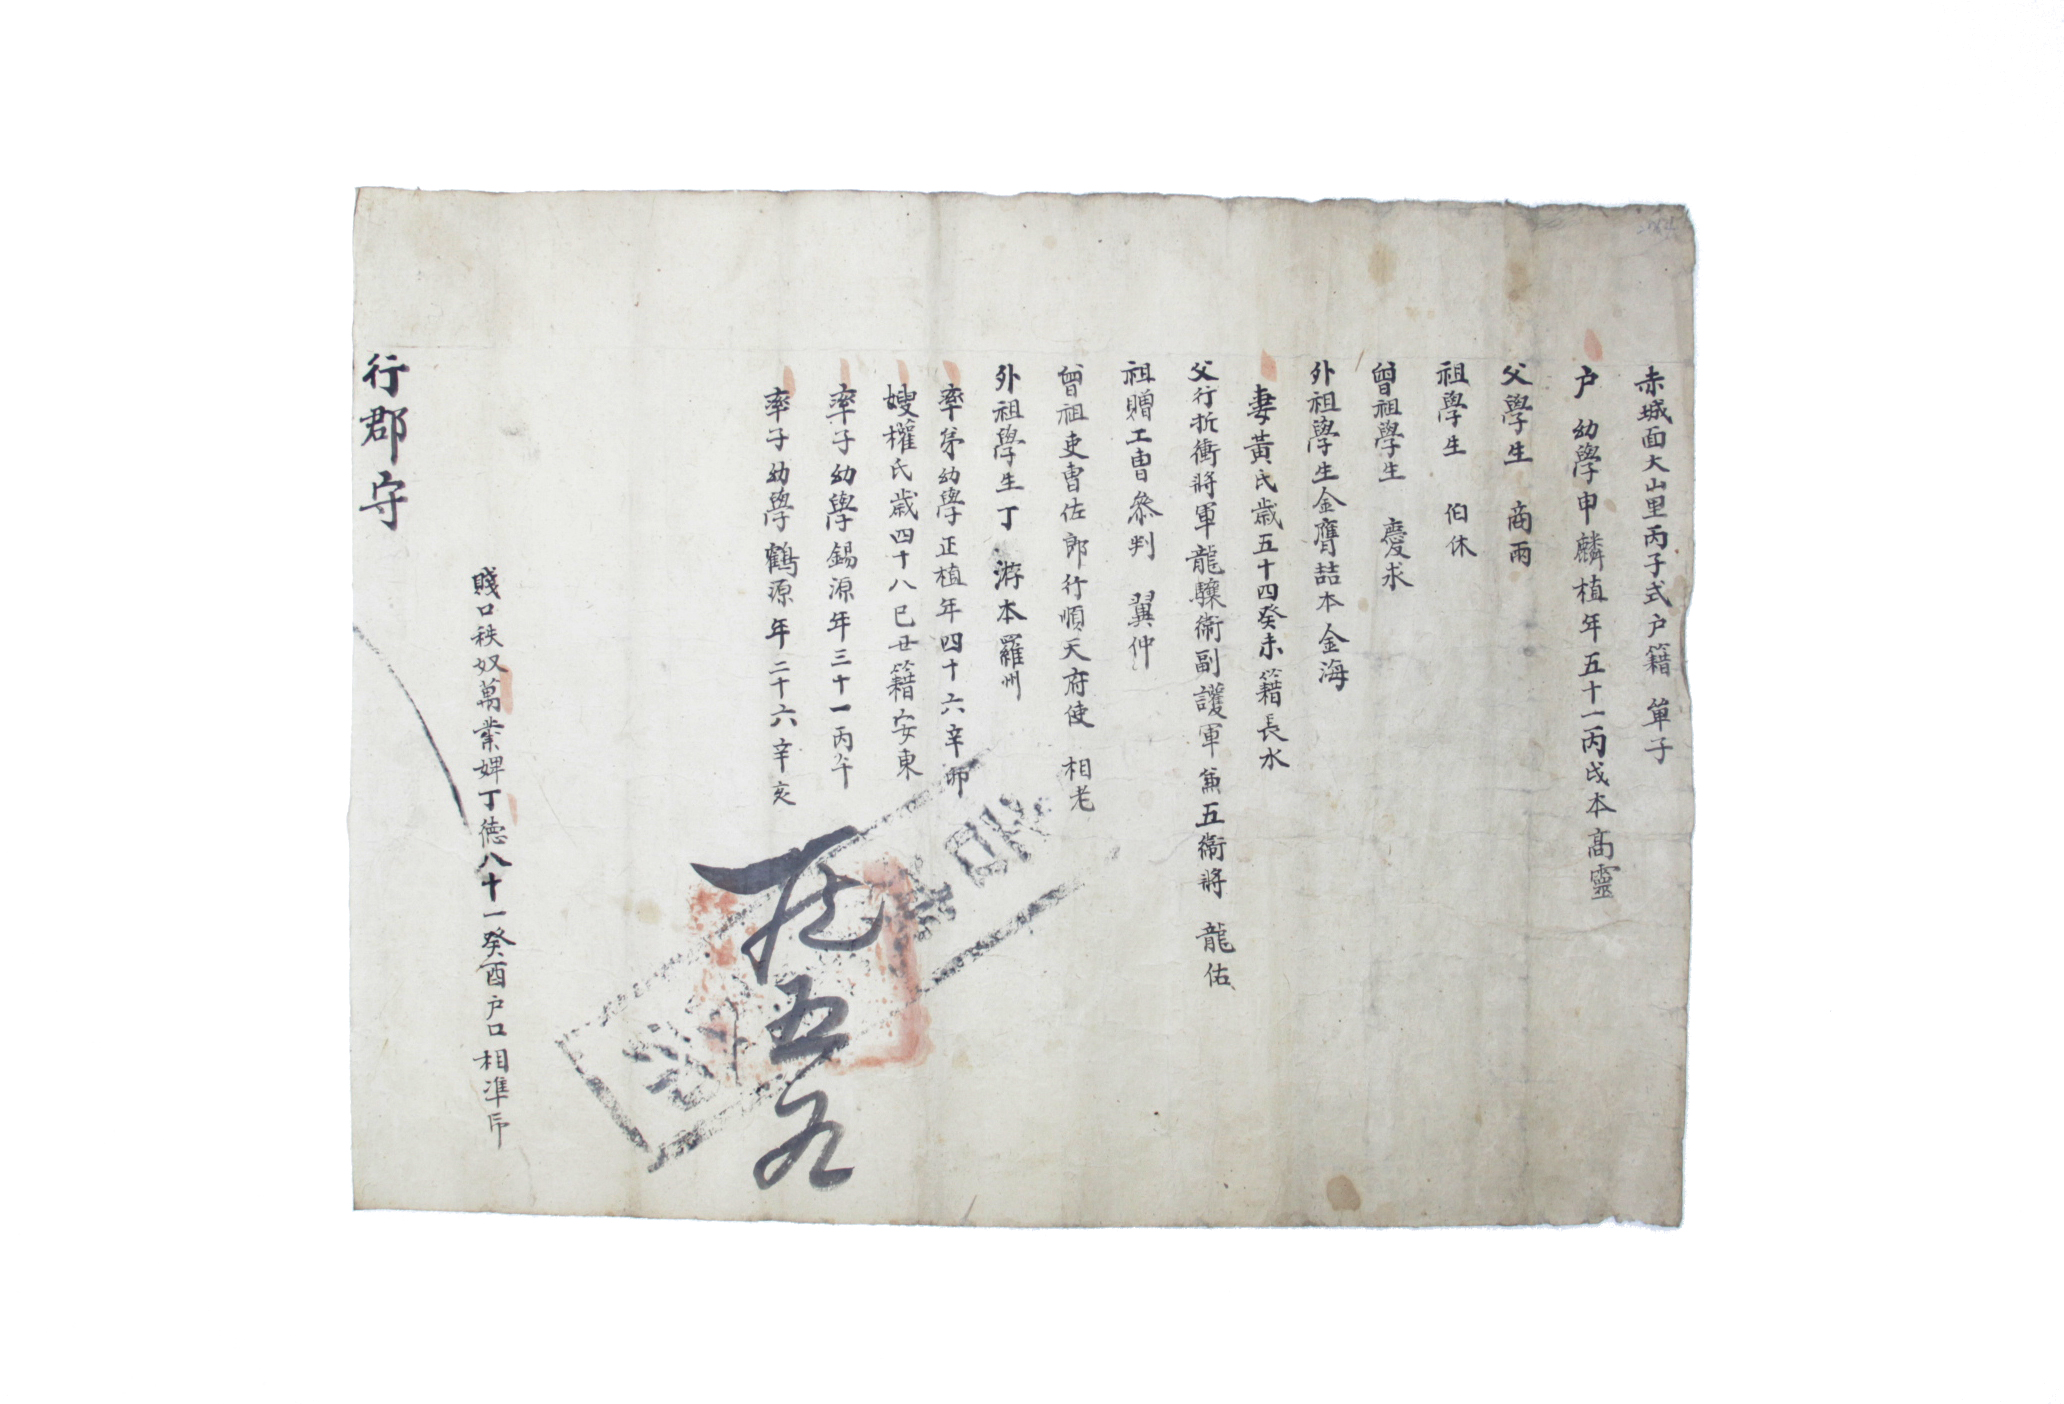 赤城面大山里丙子式户籍單子
户 幼學申麟植年五十一丙戌本高靈
父學生 商雨
祖學生 伯休
曾祖學生 慶求
外祖學生金膺喆本金海
妻黃氏歲五十四癸未籍長水
父行折衝將軍龍驤衛副護軍兼五衛將 龍佑
祖贈工曺參判 翼仲
曾祖吏曺佐郎行順天府使 相老
外祖學生丁 游本羅州
率弟幼學正植年四十六辛卯
嫂權氏歲四十八己丑籍安東
率子幼學錫源年三十一丙午
率子幼學鶴源年二十六辛亥
五九
賤口秩奴萬業婢丁德八十一癸酉户口相凖印
行郡守